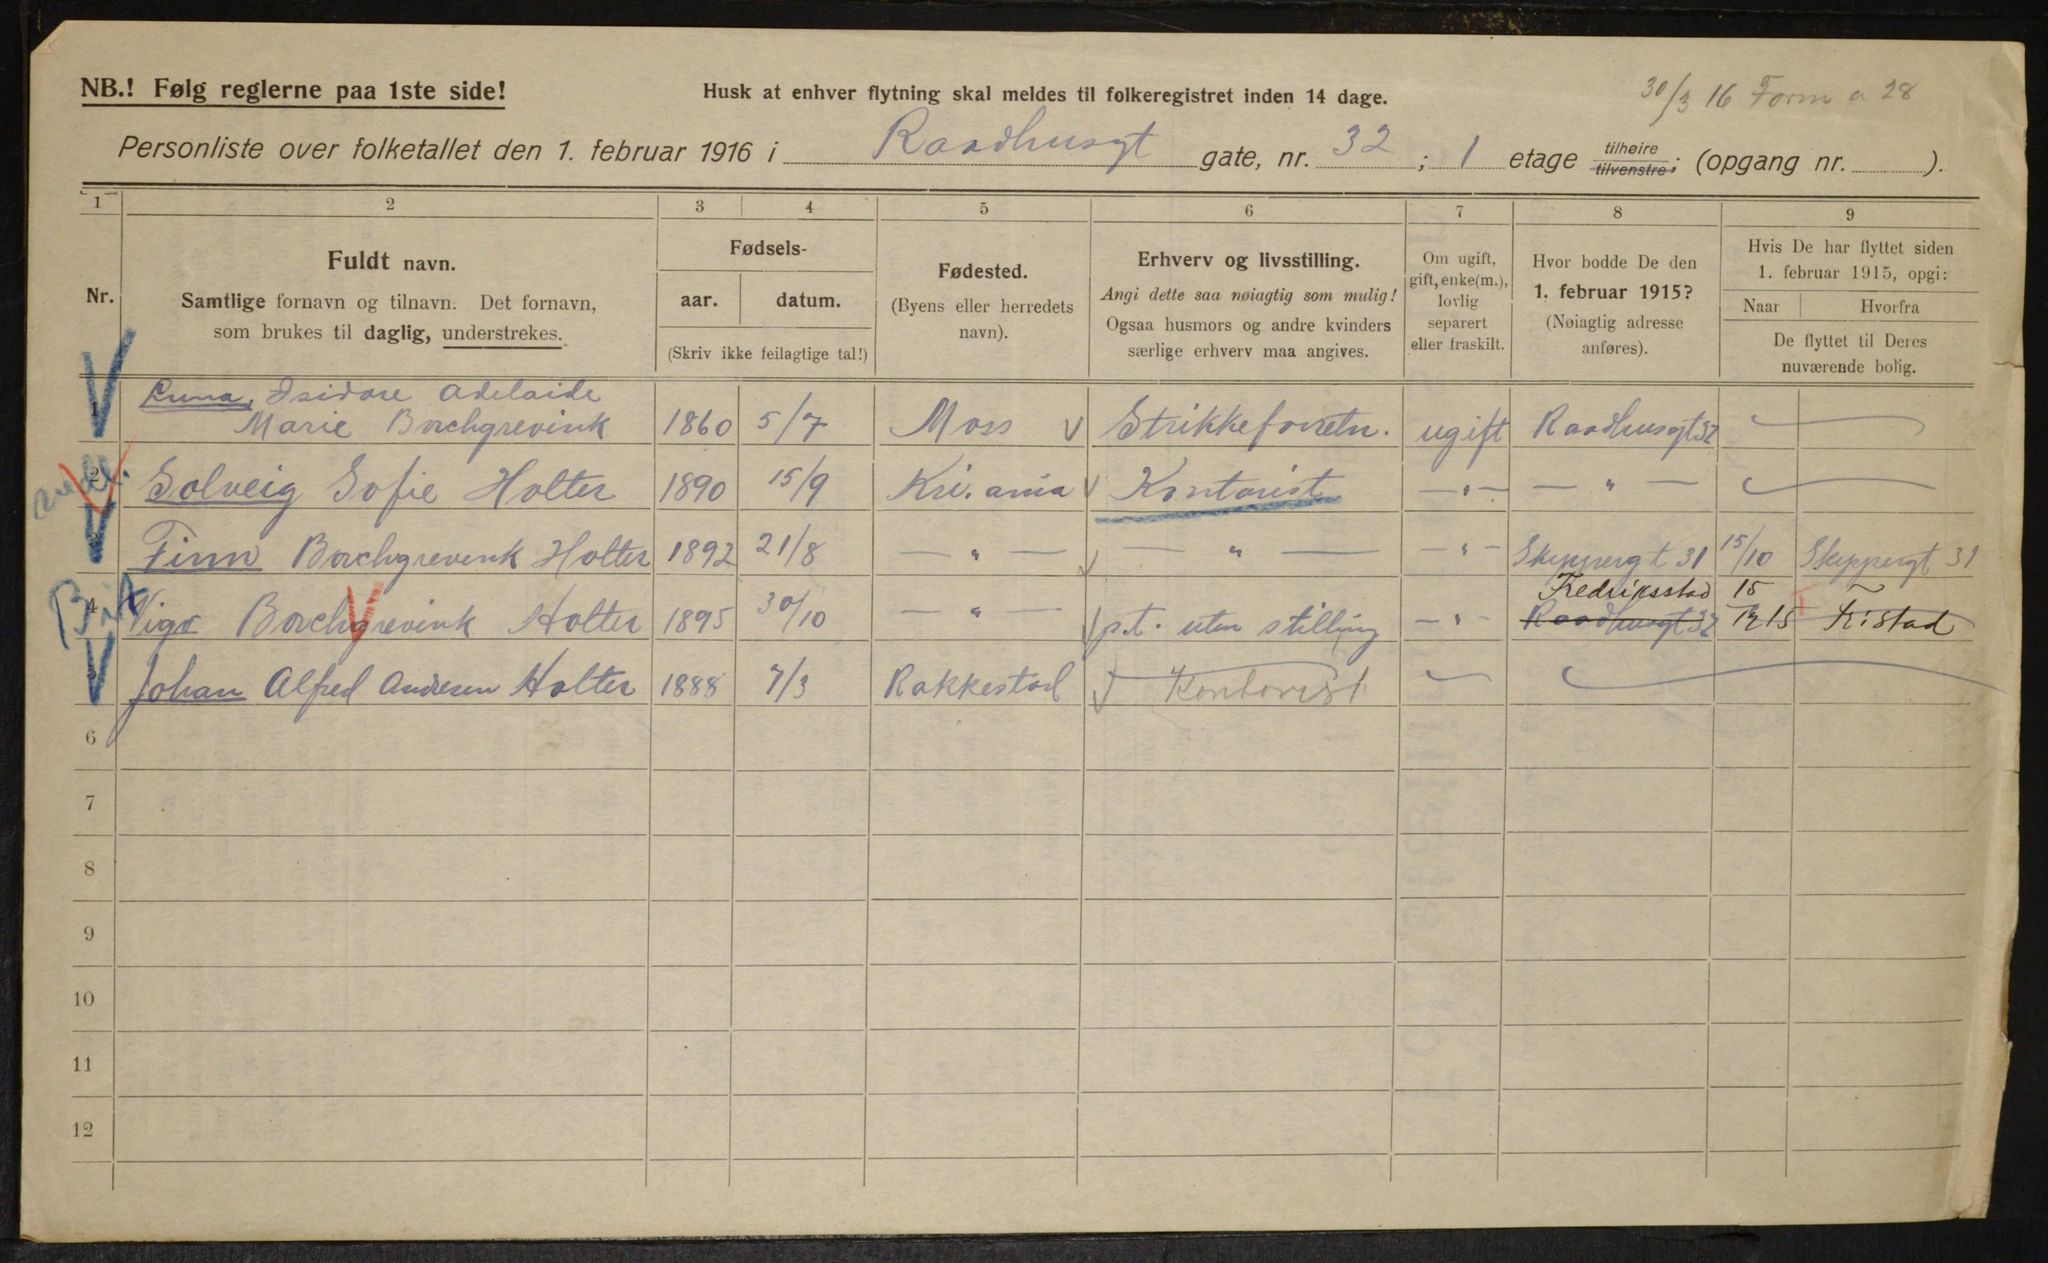 NB.! Følg reglerne paa 1ste side!
Husk at enhver flytning skal meldes til folkeregistret inden 14 dage.
30/3 16 Form a 28
Personliste over folketallet den 1. februar 1916 i Raadhusgt gate, nr. 32; 1 etage tilhøire tilvenstre; (opgang nr. ).
1 2 3 4 5 6 7 8 9
Nr.
Fuldt navn.
Samtlige fornavn og tilnavn. Det fornavn,
som brukes til daglig, understrekes.
Fødsels-
aar. datum.
(Skriv ikke feilagtige tal!)
Fødested.
(Byens eller herredets
navn).
Erhverv og livsstilling.
Angi dette saa nøiagtig som mulig!
Ogsaa husmors og andre kvinders
særlige erhverv maa angives.
Om ugift,
gift, enke(m.),
lovlig
separert
eller fraskilt.
Hvor bodde De den
1. februar 1915?
(Nøiagtig adresse
anføres).
Hvis De har flyttet siden
1. februar 1915, opgi:
Naar Hvorfra
De flyttet til Deres
nuværende bolig.
1 Luna, Isidore Adelaide
Marie Borchgrevink 1860 5/7 Moss Strikkeforretn. ugift Raadhusgt 32
2 Solveig Sofie Holter 1890 15/9 Kri.ania Kontorist — " — — " —
3 Finn Borchgrevink Holter 1892 21/8 — " — — " — — " — Skippergt 31 15/10 Skippergt 31
Fredriksstad 15
4 Vigo Borchgrevink Holter 1895 30/10 — " — p.t. uten stilling — " — Raadhusgt 32 Fr.stad
5 Johan Alfred Andresen Holter 1888 7/3 Rakkestad Kontorist
6
7
8
9
10
11
12